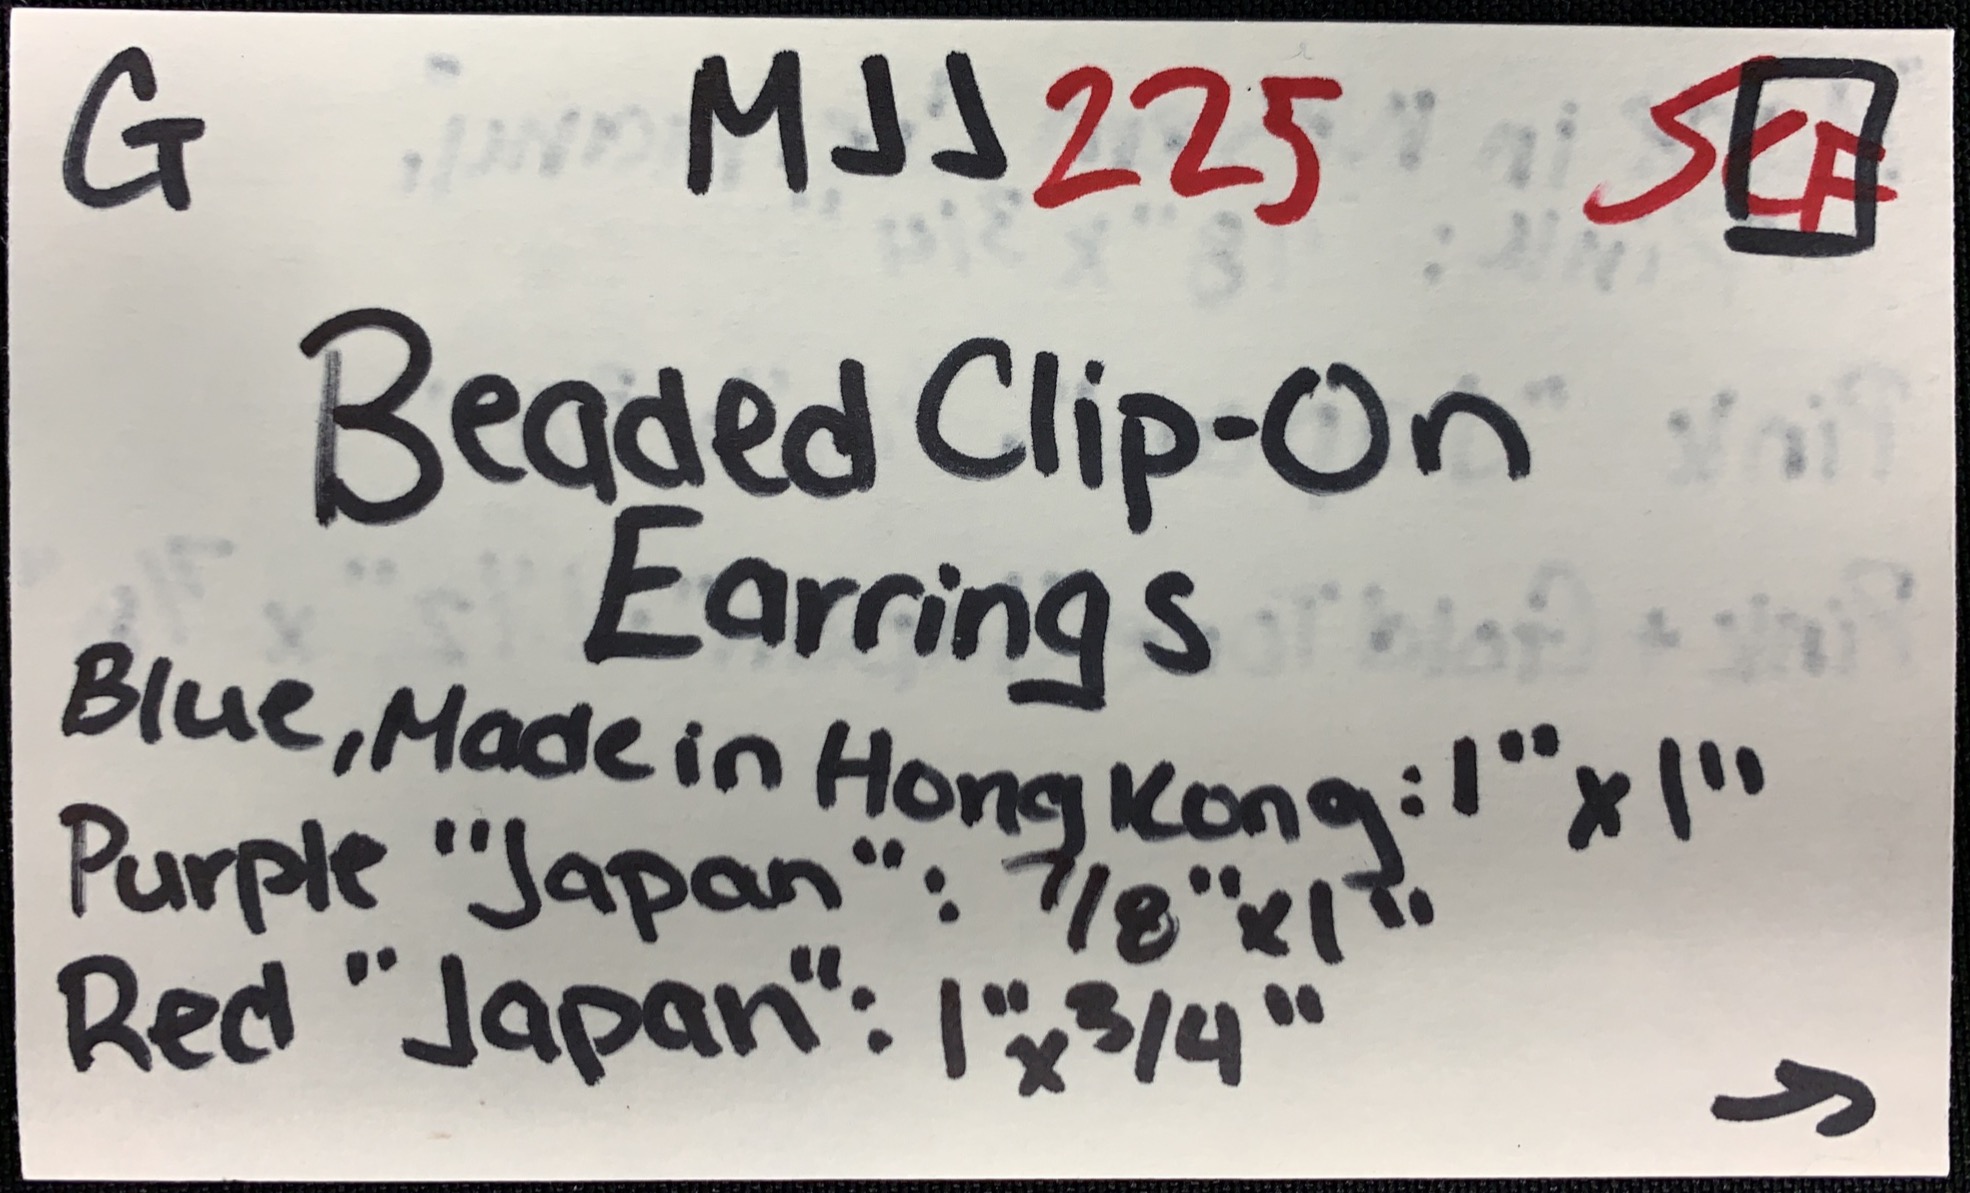 G MJJ225 SCF
Beaded Clip-On
Earrings
Blue, Made in Hong Kong: 1" x 1"
Purple "Japan": 7/8" x 1"
Red "Japan": 1" x 3/4"
→